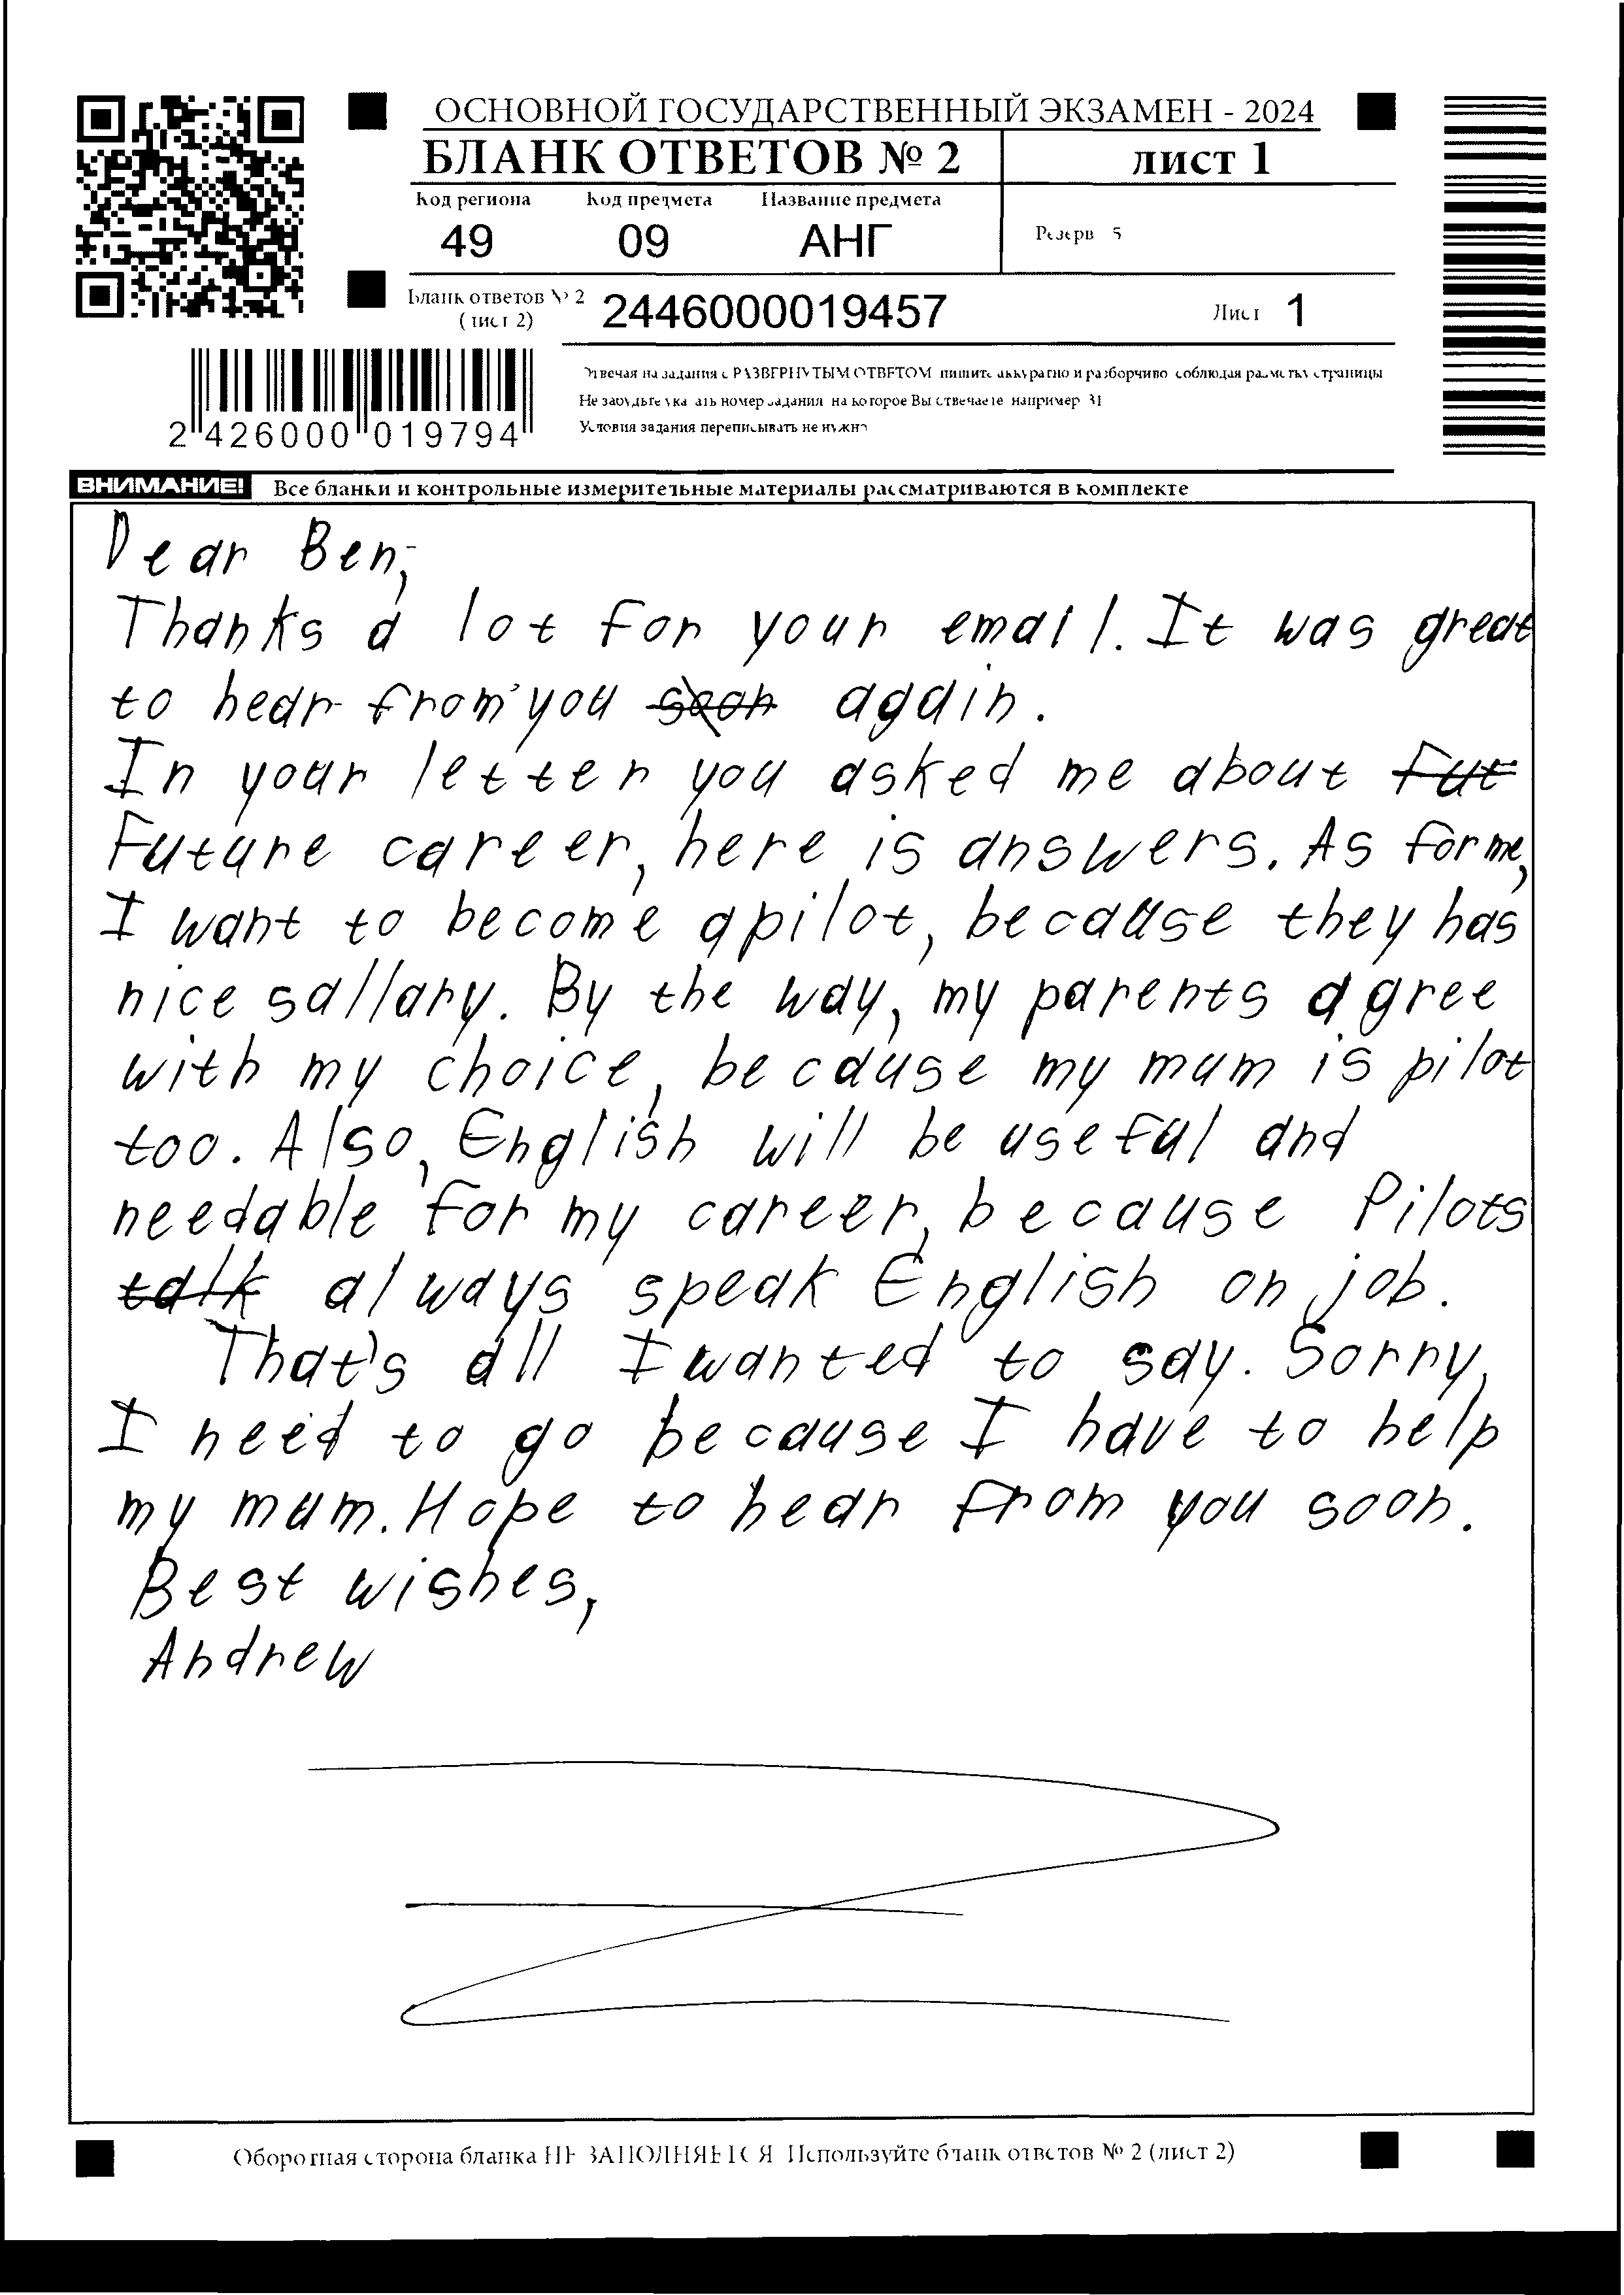 ОСНОВНОЙ ГОСУДАРСТВЕННЫЙ ЭКЗАМЕН - 2024
БЛАНК ОТВЕТОВ № 2
лист 1
Код региона Код предмета Название предмета
49 09 АНГ
Резерв 5
Бланк ответов № 2
(лист 2)
2446000019457
Лист 1
2 426000 019794
Отвечая на задания с РАЗВЕРНУТЫМ ОТВЕТОМ пишите аккуратно и разборчиво соблюдая разметку страницы
Не забудьте указать номер задания на которое Вы отвечаете например 31
Условия задания переписывать не нужно
ВНИМАНИЕ! Все бланки и контрольные измерительные материалы рассматриваются в комплекте
Dear Ben,
Thanks a lot for your email. It was great
to hear from you soon again.
In your letter you asked me about fut
future career, here is answers. As for me,
I want to become a pilot, because they has
nice sallary. By the way, my parents agree
with my choice, because my mum is pilot
too. Also, English will be useful and
needable for my career, because Pilots
talk always speak English on job.
That's all I wanted to say. Sorry,
I need to go because I have to help
my mum. Hope to hear from you soon.
Best wishes,
Andrew
Оборотная сторона бланка НЕ ЗАПОЛНЯЕТСЯ Используйте бланк ответов № 2 (лист 2)